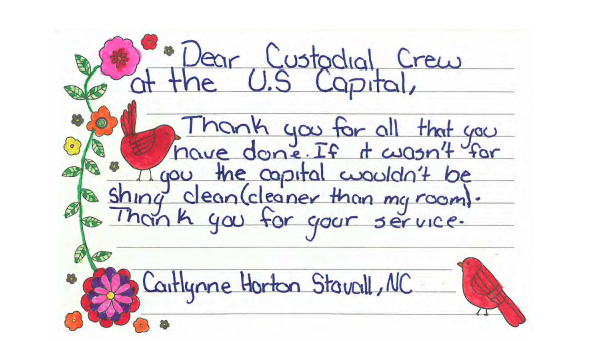 Dear Custodial Crew
at the U.S Capital,
Thank you for all that you
have done. If it wasn't for
you the capital wouldn't be
shing clean (cleaner than my room).
Thank you for your service.
Caitlynne Horton Stovall, NC